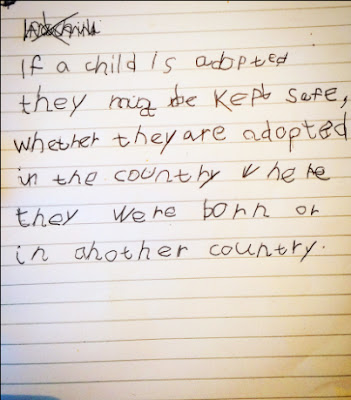 If a child is adopted
they be kept safe,
whether they are adopted
in the country where
they were born or
in another country.